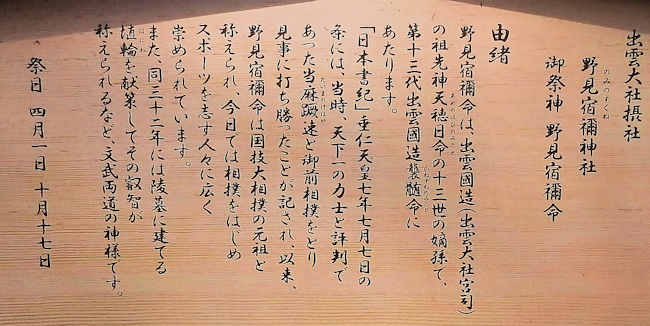 出雲大社摂社
野見宿禰神社
のみのすくね
御祭神 野見宿禰命
由緒
野見宿禰命は、出雲國造(出雲大社宮司)
の祖先神天穂日命の十三世の嫡孫で、
第十三代出雲國造襲髄命に
あたります。
「日本書紀」垂仁天皇七年七月七日の
条には、当時、天下一の力士と評判で
あった当麻蹶速と御前相撲をとり
見事に打ち勝ったことが記され、以来、
野見宿禰命は国技大相撲の元祖と
称えられ、今日では相撲をはじめ
スポーツを志す人々に広く
崇められています。
また、同三十二年には陵墓に建てる
埴輪を献策してその叡智が
称えられるなど、文武両道の神様です。
祭日 四月一日 十月十七日